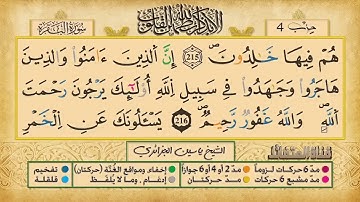 سورة البقرة
ألا بذكر الله تطمئن القلوب
حزب 4
هُمْ فِيهَا خَٰلِدُونَ 215 إِنَّ ٱلَّذِينَ ءَامَنُوا۟ وَٱلَّذِينَ
هَاجَرُوا۟ وَجَٰهَدُوا۟ فِى سَبِيلِ ٱللَّهِ أُو۟لَٰٓئِكَ يَرْجُونَ رَحْمَتَ
ٱللَّهِ وَٱللَّهُ غَفُورٌ رَّحِيمٌ 216 يَسْـَٔلُونَكَ عَنِ ٱلْخَمْرِ
الشيخ ياسين الجزائري
مدّ 6 حركات لزوماً مدّ 2 أو 4 أو 6 جوازاً إخفاء، ومواقع الغُنَّة (حركتان) تفخيم
مدّ مشبع 6 حركات مدّ حركتان إدغام، وما لا يُلفظ قلقلة